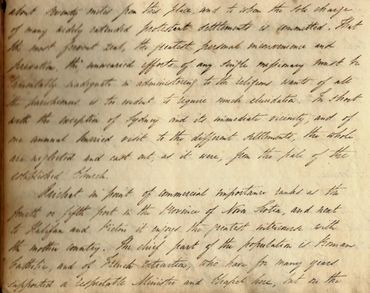 about seventy miles from this place and to whom the sole charge
of many widely extended protestant settlements is committed. That
the most fervent zeal, the greatest personal inconvenience and
privation, the unwearied efforts of any single missionary must be
lamentably inadequate in administering to the religious wants of all
the parishioners is too evident to require much elucidation. In short
with the exception of Sydney and its immediate vicinity, and of
one annual hurried visit to the different settlements, the whole
are neglected and cast out, as it were, from the pale of the
established Church.
Arichat in point of commercial importance ranks as the
fourth or fifth port in the Province of Nova Scotia, and next
to Halifax and Pictou it enjoys the greatest intercourse with
the mother country. The chief part of the population is Roman
Catholic, and of French extraction, who have for many years
supported a respectable Minister and Chapel here, but on the